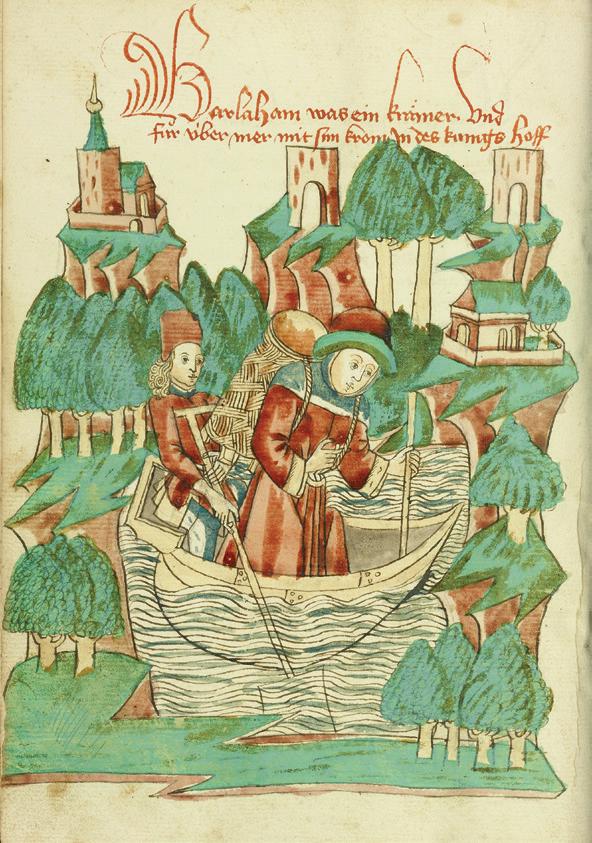 Barlaham was ein krämer. Vnd
für v̈ber mer mit sim krom jn des kunigs hoff